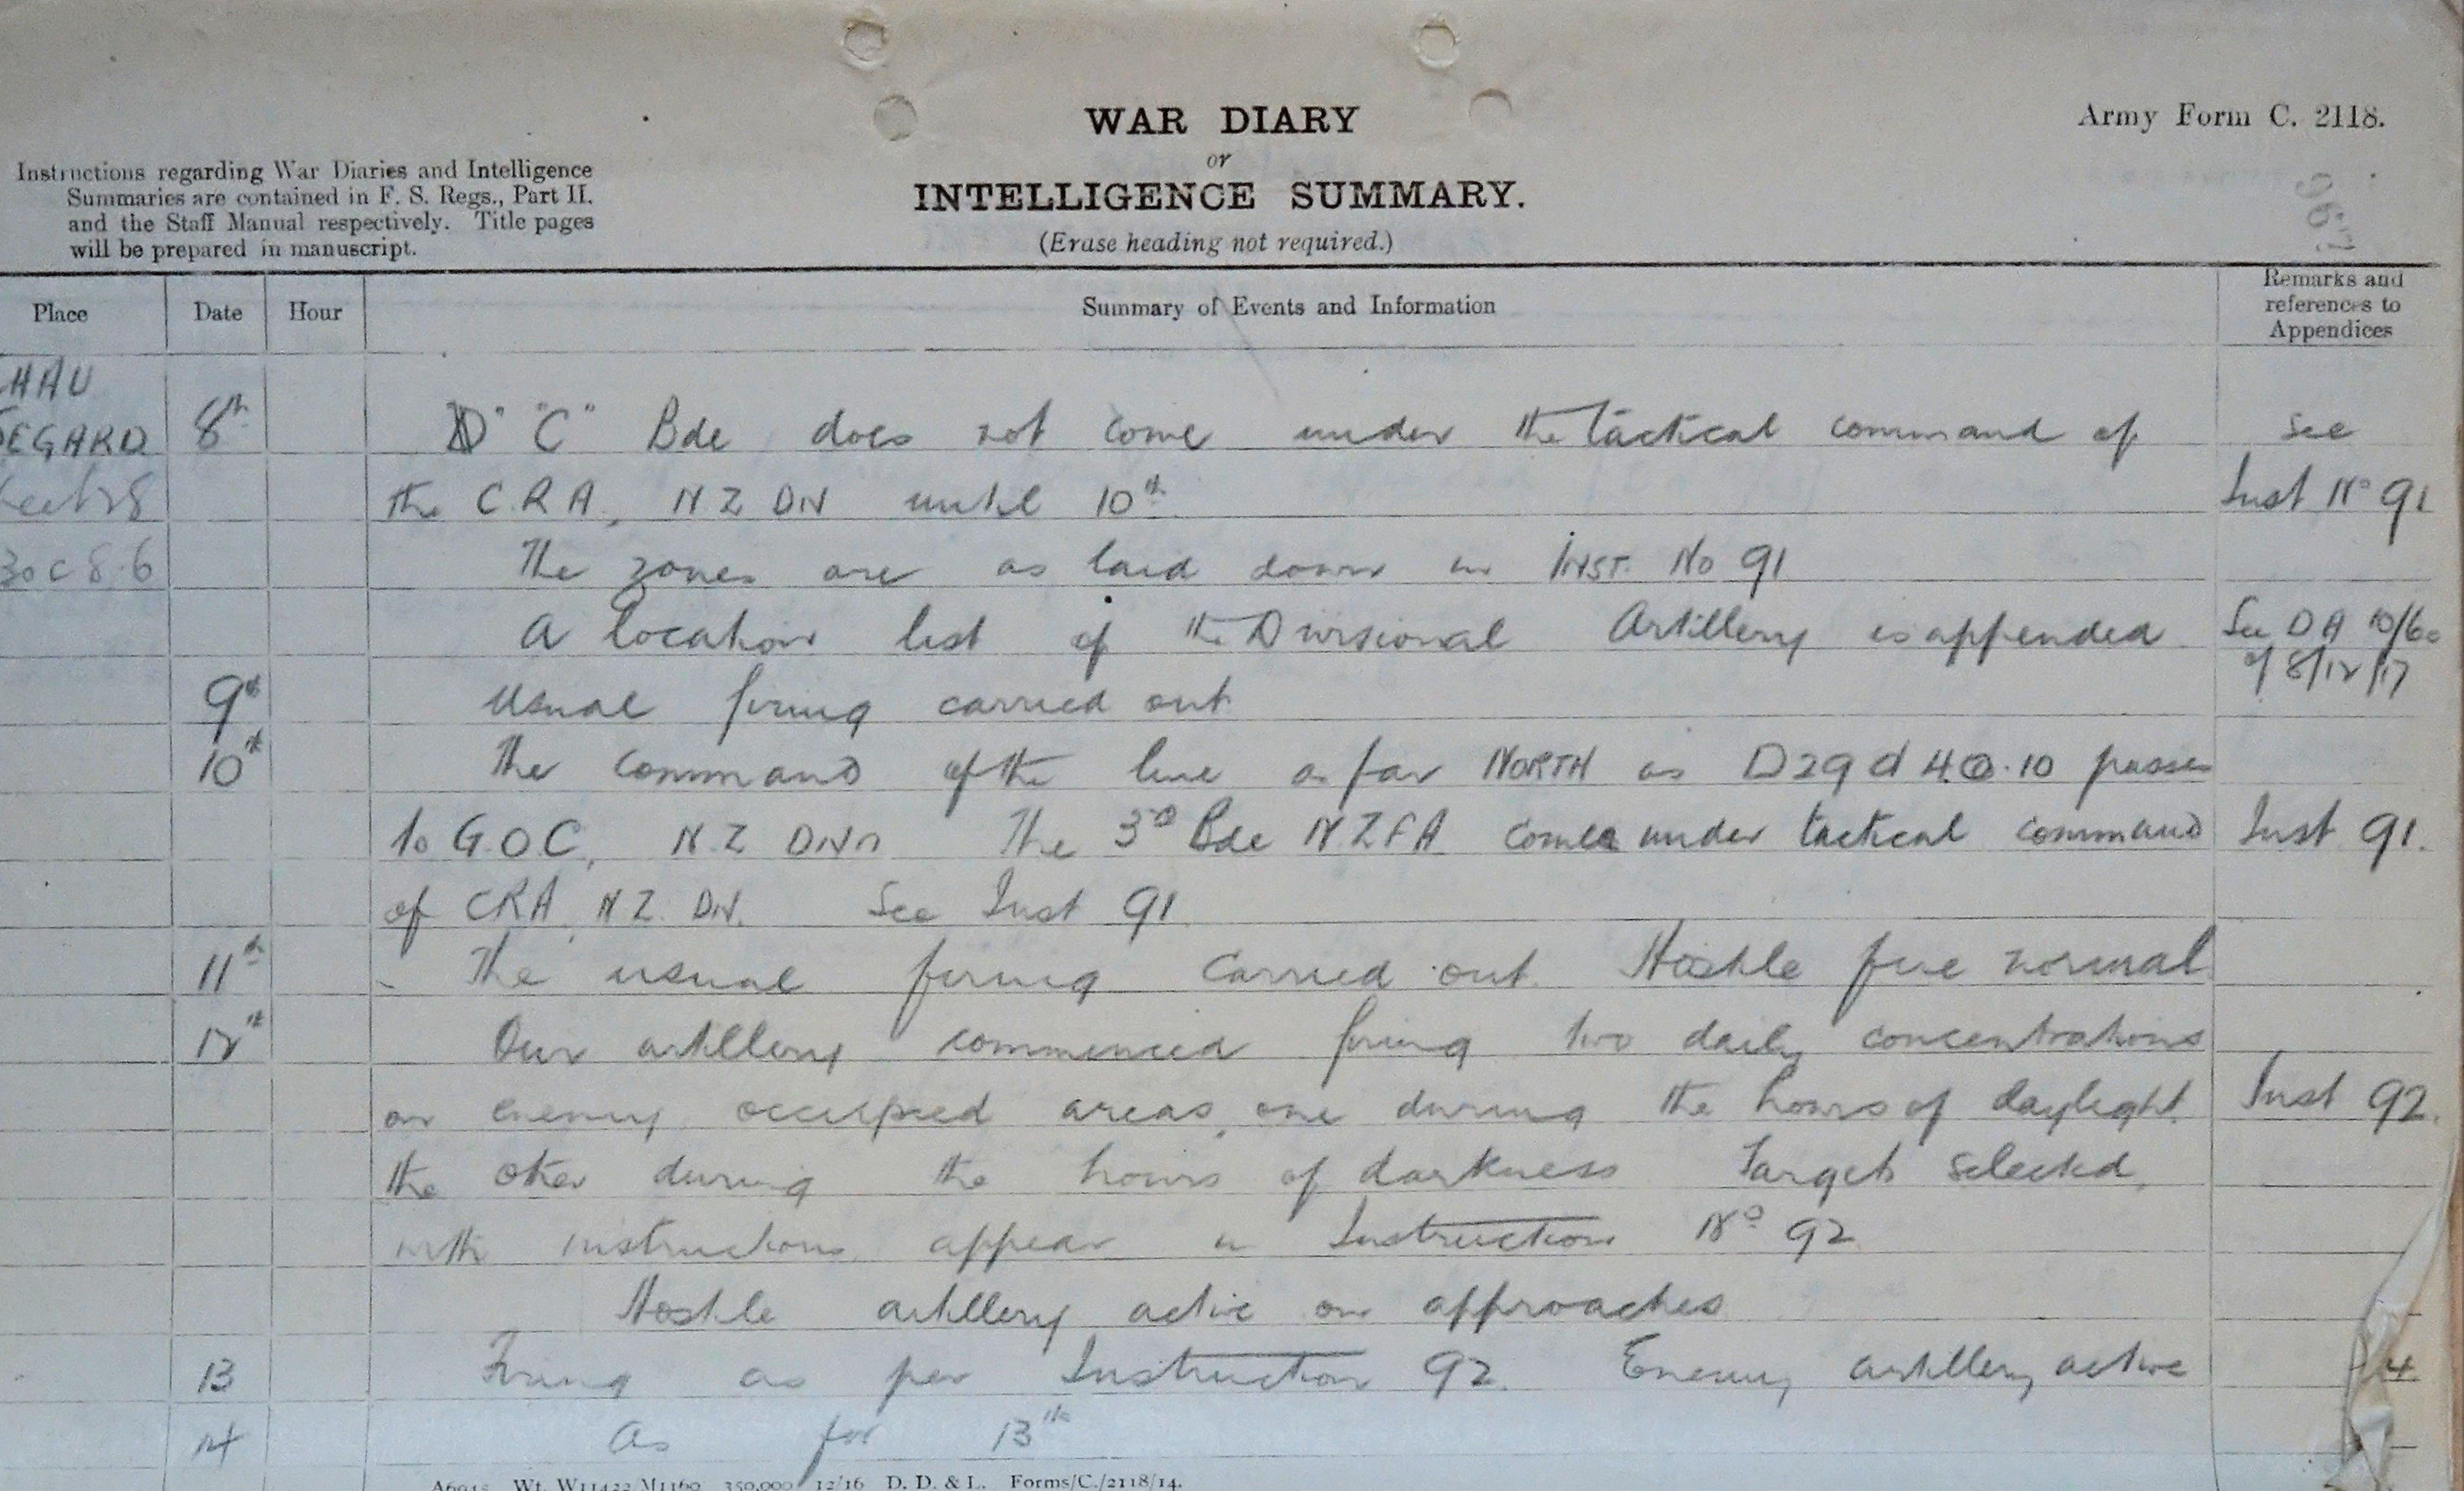 WAR DIARY
or
INTELLIGENCE SUMMARY.
(Erase heading not required.)
Army Form C. 2118.
Instructions regarding War Diaries and Intelligence
Summaries are contained in F. S. Regs., Part II.
and the Staff Manual respectively. Title pages
will be prepared in manuscript.
Place Date Hour Summary of Events and Information Remarks and references to Appendices
HAU
EGARD 8th "C" Bde does not come under the tactical command of See
the C.R.A., N Z DIV until 10th. Inst No 91
30 c 8.6 The zones are as laid down in INST. No 91
A location list of the Divisional Artillery is appended See DA 10/60
of 8/12/17
9th Usual firing carried out
10th The command of the line as far NORTH as D29 d 40.10 passes
to G.O.C., N.Z DIVn The 3rd Bde N.Z.F.A comes under tactical command Inst 91.
of CRA, N Z. DIV. See Inst 91
11th - The usual firing carried out. Hostile fire normal.
12th Our artillery commenced firing two daily concentrations
on enemy occupied areas, one during the hours of daylight Inst 92.
the other during the hours of darkness Targets selected,
with instructions appear in Instruction No 92
Hostile artillery active on approaches
13 Firing as per Instruction 92. Enemy artillery active
14 As for 13th
350,000 12/16 D. D. & L. Forms/C./2118/14.